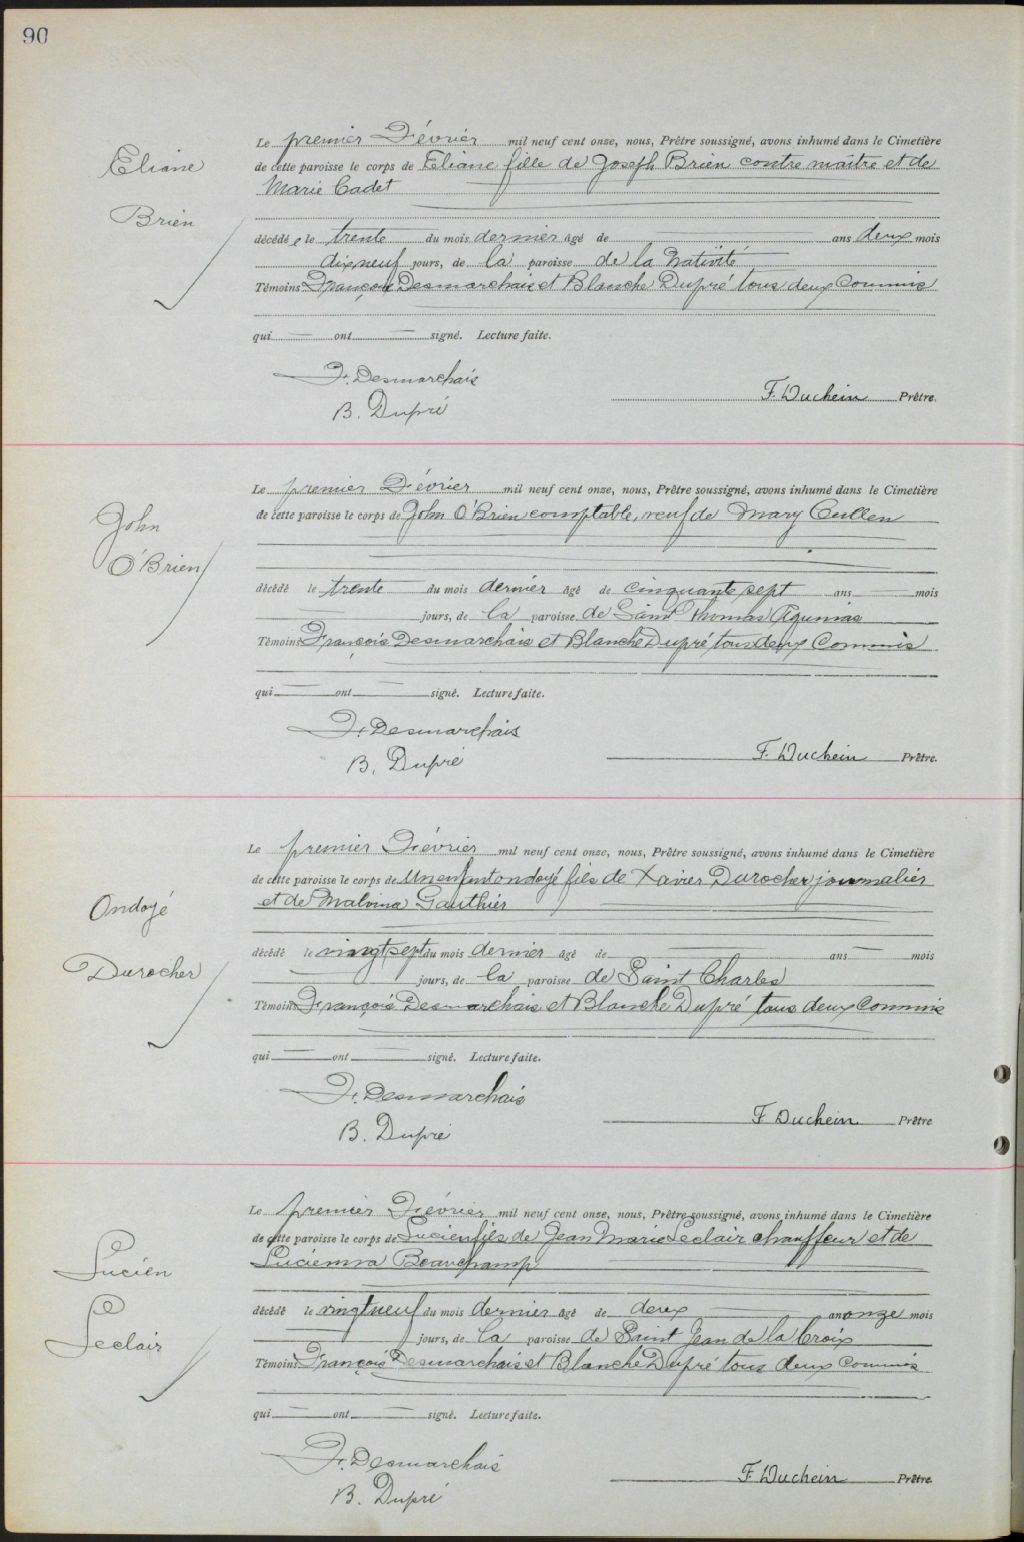 90
Eliane
Brien
Le premier Février mil neuf cent onze, nous, Prêtre soussigné, avons inhumé dans le Cimetière
de cette paroisse le corps de Eliane fille de Joseph Brien contre maître et de
Marie Cadet
décédé e le trente du mois dernier âgé de ans deux mois
dixneuf jours, de la paroisse de la Nativité
Témoins François Desmarchais et Blanche Dupré tous deux Commis
qui ont signé. Lecture faite.
F. Desmarchais
B. Dupré
F. Duchein Prêtre.
John
O'Brien
Le premier Février mil neuf cent onze, nous, Prêtre soussigné, avons inhumé dans le Cimetière
de cette paroisse le corps de John O'Brien comptable, veuf de Mary Cullen
décédé le trente du mois dernier âgé de cinquante sept ans mois
jours, de la paroisse de Saint Thomas Aquinas
Témoins François Desmarchais et Blanche Dupré tous deux Commis
qui ont signé. Lecture faite.
F. Desmarchais
B. Dupré
F. Duchein Prêtre.
Ondoyé
Durocher
Le premier Février mil neuf cent onze, nous, Prêtre soussigné, avons inhumé dans le Cimetière
de cette paroisse le corps de Un enfant ondoyé fils de Xavier Durocher journalier
et de Malvina Gauthier
décédé le vingt sept du mois dernier âgé de ans mois
jours, de la paroisse de Saint Charles
Témoins François Desmarchais et Blanche Dupré tous deux Commis
qui ont signé. Lecture faite.
F. Desmarchais
B. Dupré
F. Duchein Prêtre
Lucien
Leclair
Le premier Février mil neuf cent onze, nous, Prêtre soussigné, avons inhumé dans le Cimetière
de cette paroisse le corps de Lucien fils de Jean Marie Leclair chauffeur et de
Lucienna Beauchamp
décédé le vingt neuf du mois dernier âgé de deux ans onze mois
jours, de la paroisse de Saint Jean de la Croix
Témoins François Desmarchais et Blanche Dupré tous deux Commis
qui ont signé. Lecture faite.
F. Desmarchais
B. Dupré
F. Duchein Prêtre.